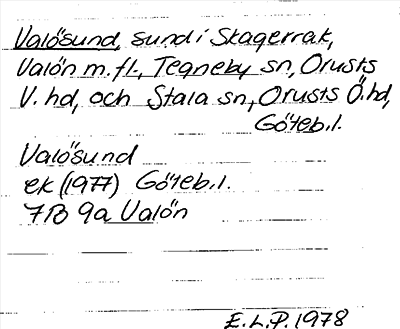 Valösund, sund i Skagerrak,
Valön m.fl., Tegneby sn, Orusts
V. hd, och Stala sn, Orusts Ö. hd,
Göteb. l.
Valösund
ek (1977) Göteb. l.
7B 9a Valön
E.L.P. 1978